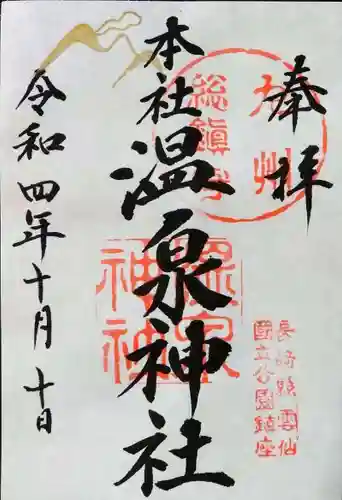 奉拝
九州
総鎮守
本社 温泉神社
温泉
神社
長崎県雲仙
国立公園鎮座
令和四年十月十日